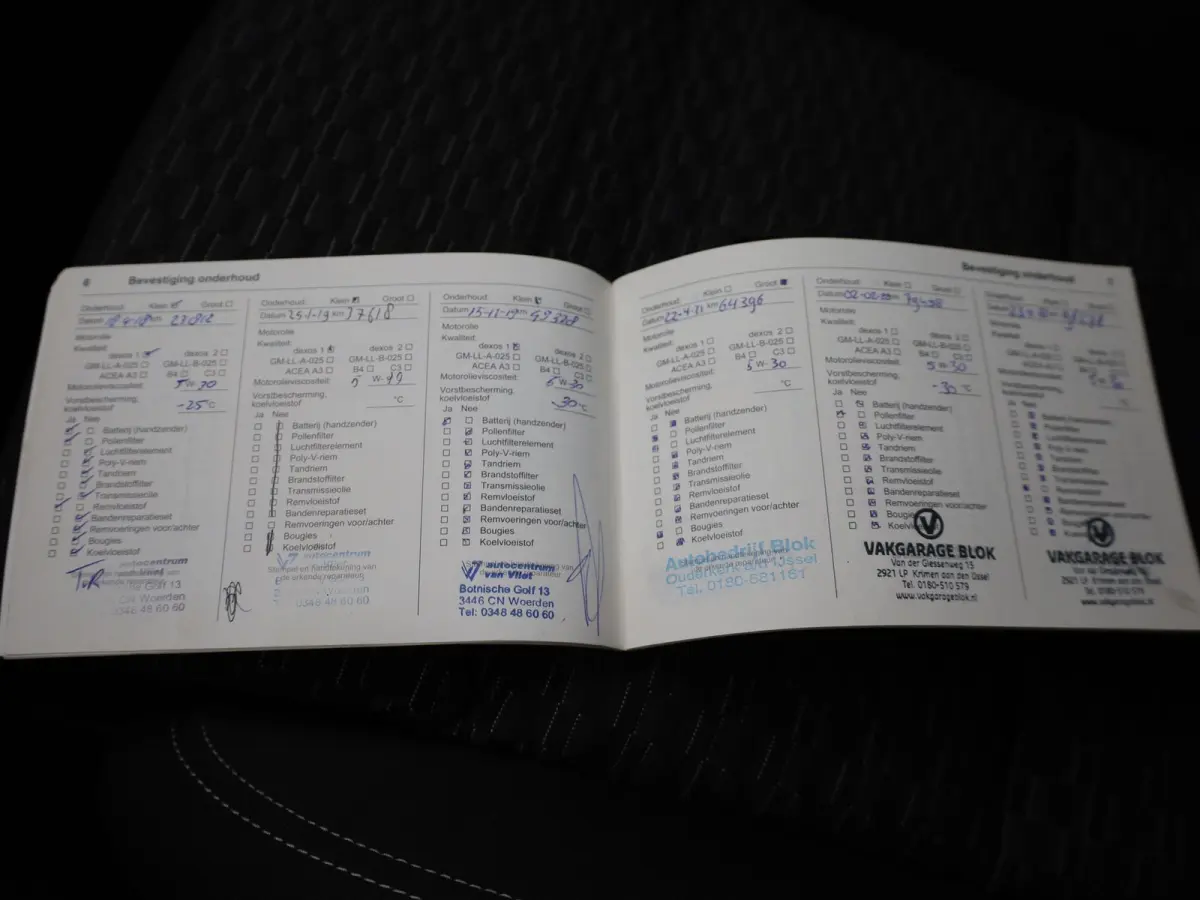 6 Bevestiging onderhoud
Onderhoud: Klein Groot
Datum 18-4-18 km 23812
Motorolie
Kwaliteit:
dexos 1 dexos 2
GM-LL-A-025 GM-LL-B-025
ACEA A3 B4 C3
Motorolieviscositeit:
5 W-30
Vorstbescherming,
koelvloeistof -25 °C
Ja Nee
Batterij (handzender)
Pollenfilter
Luchtfilterelement
Poly-V-riem
Tandriem
Brandstoffilter
Transmissieolie
Remvloeistof
Bandenreparatieset
Remvoeringen voor/achter
Bougies
Koelvloeistof
autocentrum
Golf 13
CN Woerden
0348 48 60 60
Onderhoud: Klein Groot
Datum 25-1-19 km 37618
Motorolie
Kwaliteit:
dexos 1 dexos 2
GM-LL-A-025 GM-LL-B-025
ACEA A3 B4 C3
Motorolieviscositeit:
W-
Vorstbescherming,
koelvloeistof °C
Ja Nee
Batterij (handzender)
Pollenfilter
Luchtfilterelement
Poly-V-riem
Tandriem
Brandstoffilter
Transmissieolie
Remvloeistof
Bandenreparatieset
Remvoeringen voor/achter
Bougies
Koelvloeistof
autocentrum
Stempel en handtekening van
de erkende reparateur
Woerden
0348 48 60 60
Onderhoud: Klein Groot
Datum 15-11-19 km
Motorolie
Kwaliteit:
dexos 1 dexos 2
GM-LL-A-025 GM-LL-B-025
ACEA A3 B4 C3
Motorolieviscositeit:
5 W-30
Vorstbescherming,
koelvloeistof -30 °C
Ja Nee
Batterij (handzender)
Pollenfilter
Luchtfilterelement
Poly-V-riem
Tandriem
Brandstoffilter
Transmissieolie
Remvloeistof
Bandenreparatieset
Remvoeringen voor/achter
Bougies
Koelvloeistof
autocentrum
van Vliet
Botnische Golf 13
3446 CN Woerden
Tel: 0348 48 60 60
Bevestiging onderhoud 7
Onderhoud: Klein Groot
Datum 22-4-21 km 64396
Motorolie
Kwaliteit:
dexos 1 dexos 2
GM-LL-A-025 GM-LL-B-025
ACEA A3 B4 C3
Motorolieviscositeit:
5 W-30
Vorstbescherming,
koelvloeistof °C
Ja Nee
Batterij (handzender)
Pollenfilter
Luchtfilterelement
Poly-V-riem
Tandriem
Brandstoffilter
Transmissieolie
Remvloeistof
Bandenreparatieset
Remvoeringen voor/achter
Bougies
Koelvloeistof
Autobedrijf Blok
Ouderkerk a/d IJssel
Tel. 0180-681161
Onderhoud: Klein Groot
Datum 02-02- km
Motorolie
Kwaliteit:
dexos 1 dexos 2
GM-LL-A-025 GM-LL-B-025
ACEA A3 B4 C3
Motorolieviscositeit:
5 W-30
Vorstbescherming,
koelvloeistof -30 °C
Ja Nee
Batterij (handzender)
Pollenfilter
Luchtfilterelement
Poly-V-riem
Tandriem
Brandstoffilter
Transmissieolie
Remvloeistof
Bandenreparatieset
Remvoeringen voor/achter
Bougies
VAKGARAGE BLOK
Van der Giessenweg 15
2921 LP Krimpen aan den IJssel
Tel. 0180-510 579
www.vakgarageblok.nl
Onderhoud: Klein
Datum
Motorolie
Kwaliteit:
dexos 1
GM-LL-A-025
Ja Nee
Batterij (handzender)
Pollenfilter
Luchtfilterelement
Poly-V-riem
Tandriem
Brandstoffilter
Transmissieolie
Remvloeistof
Bandenreparatieset
Remvoeringen voor/achter
Bougies
VAKGARAGE BLOK
2921 LP Krimpen aan den IJssel
Tel. 0180-510 579
www.vakgarageblok.nl